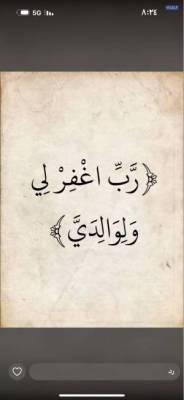 5G ٨:٢٤
﴿رَّبِّ اغْفِرْ لِي
وَلِوَالِدَيَّ﴾
رد